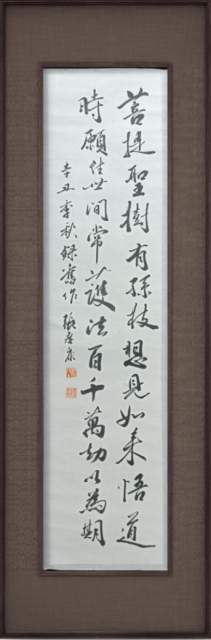 菩提聖樹有孫枝想見如来悟道
時願住世间常護法百千萬劫以為期
辛丑季秋録舊作